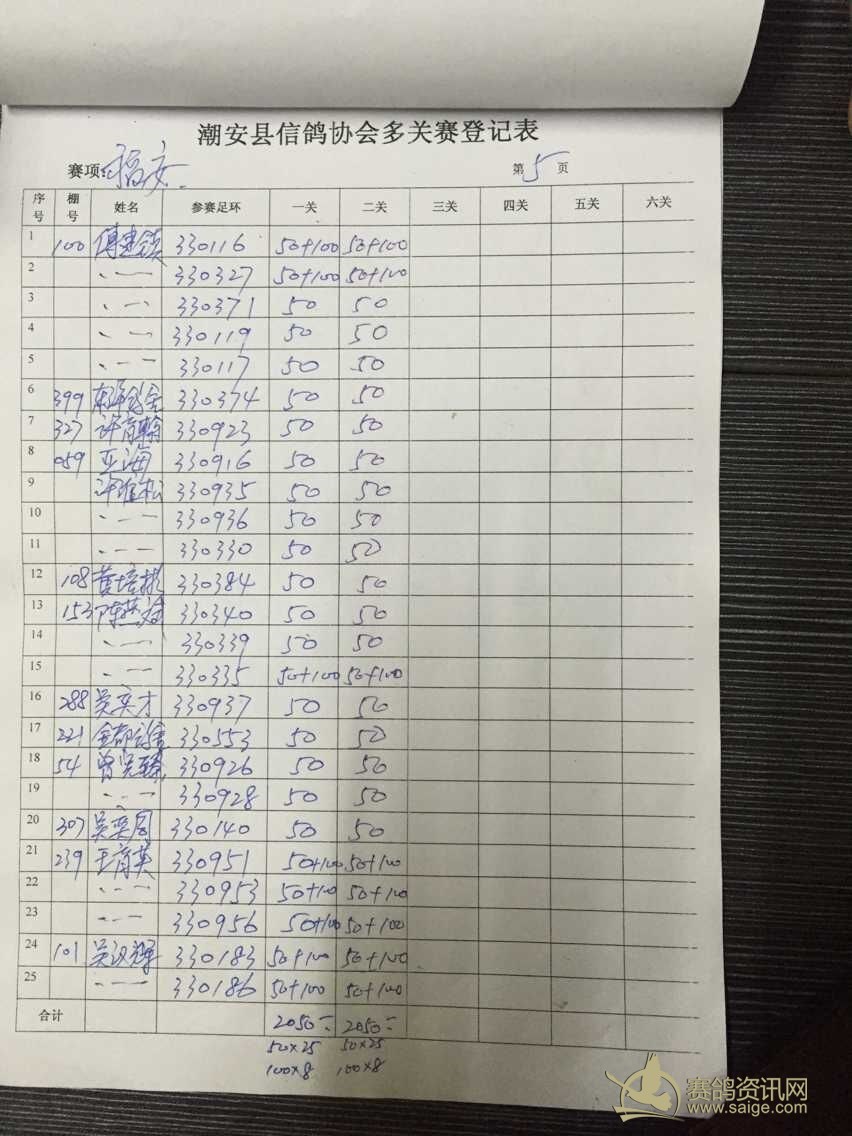 潮安县信鸽协会多关赛登记表
赛项: 福安 第5页
序号 棚号 姓名 参赛足环 一关 二关 三关 四关 五关 六关
1 100 傅建镇 330116 50+100 50+100
2 、一一 330327 50+100 50+100
3 、一一 330371 50 50
4 、一一 330119 50 50
5 、一一 330117 50 50
6 399 330374 50 50
7 327 许育翰 330923 50 50
8 059 亚海 330916 50 50
9 许维松 330935 50 50
10 、一一 330936 50 50
11 、一一 330330 50 50
12 108 黄培彬 330384 50 50
13 153 330340 50 50
14 、一一 330339 50 50
15 、一一 330335 50+100 50+100
16 288 吴奕才 330937 50 50
17 221 330553 50 50
18 54 330926 50 50
19 、一一 330928 50 50
20 307 330140 50 50
21 239 王育英 330951 50+100 50+100
22 、一一 330953 50+100 50+100
23 、一一 330956 50+100 50+100
24 101 吴汉辉 330183 50+100 50+100
25 、一一 330186 50+100 50+100
合计 2050 2050
50×25 50×25
100×8 100×8
赛鸽资讯网
www.saige.com